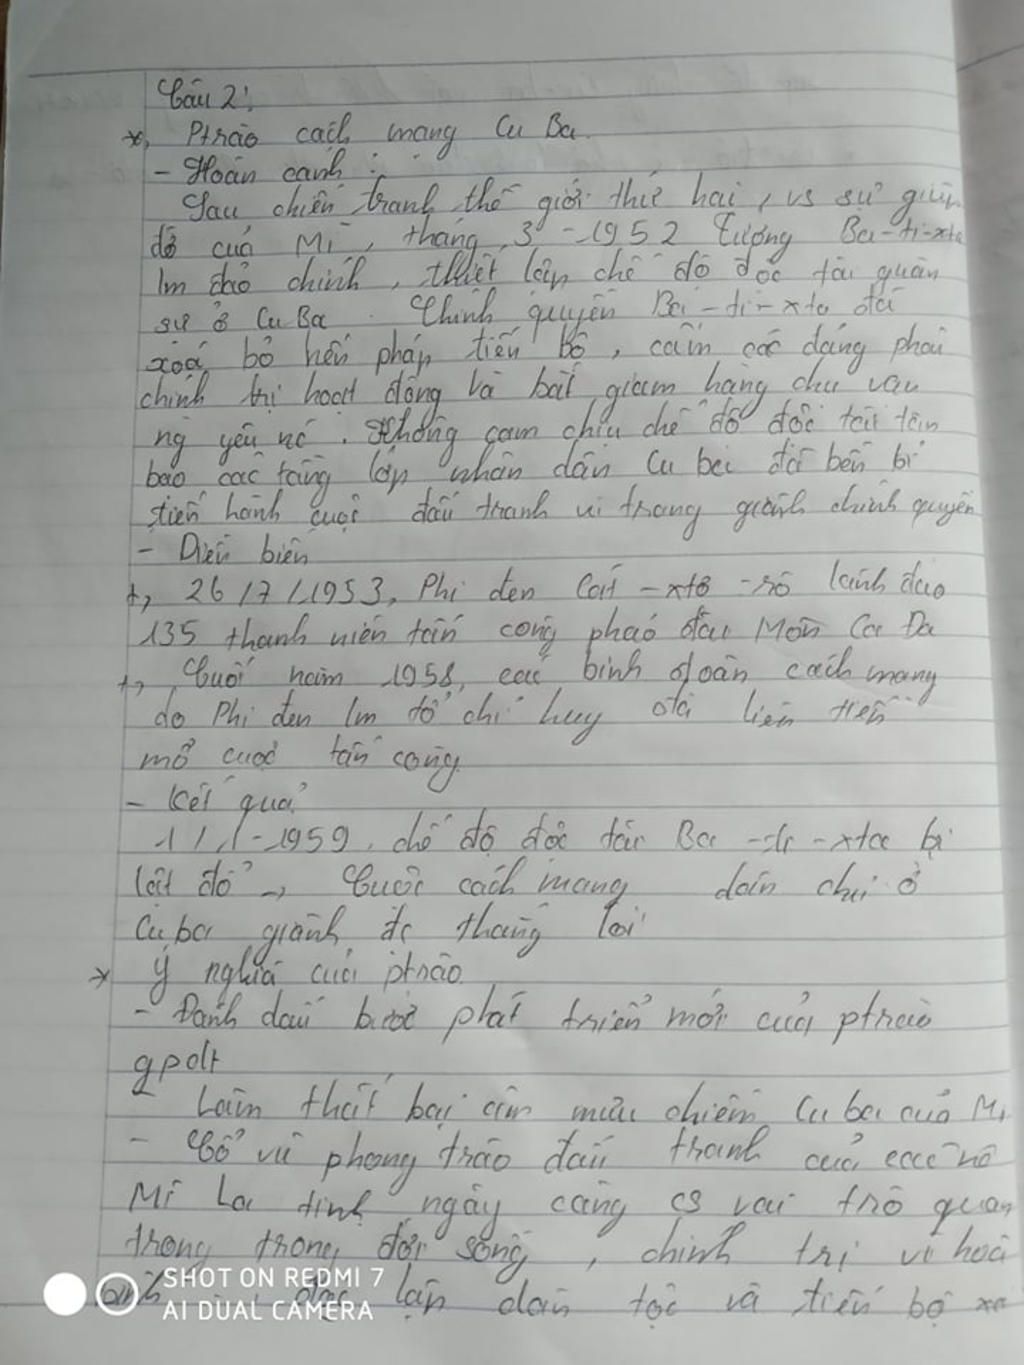 Câu 2:
*, Ptrào cách mạng Cu Ba.
- Hoàn cảnh :
Sau chiến tranh thế giới thứ hai, vs sự giúp
đỡ của Mĩ, tháng 3 - 1952 tướng Ba-ti-xta
lm đảo chính, thiết lập chế độ độc tài quân
sự ở Cu Ba. Chính quyền Ba-ti-xta đã
xoá bỏ hến pháp tiến bộ, cấm các đảng phái
chính trị hoạt động và bắt giam hàng chu vạn
ng yêu nc. Không cam chịu chế độ độc tài tàn
bạo các tầng lớp nhân dân Cu ba đã bền bỉ
tiến hành cuộc đấu tranh vi trang giành chính quyền
- Diễn biến
+, 26/7/1953, Phi đen Cát-xtơ-rô lãnh đạo
135 thanh niên tấn công pháo đài Môn Ca Đa
+, Cuối năm 1958, các binh đoàn cách mạng
do Phi đen lm tổ chỉ huy đã liên tiến
mở cuộc tấn công.
- Kết quả
1/1-1959, chế độ độc tài Ba-ti-xta bị
lật đổ → Cuộc cách mạng dân chủ ở
Cu ba giành đc thắng lợi
* Ý nghĩa của ptrào
- Đánh dấu bước phát triển mới của ptrào
gpdt
- Làm thất bại âm mưu chiếm Cu ba của Mĩ
- Cổ vũ phong trào đấu tranh của các nc
Mĩ La tinh ngày càng cs vai trò quan
trọng trong đời sống, chính trị vì hoà
bình lập dân tộc và tiến bộ xã
SHOT ON REDMI 7
AI DUAL CAMERA